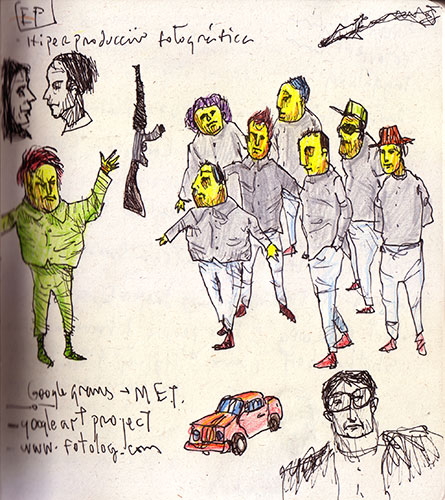 EP
- Hiperproducción fotográfica
Googlegrams → MET.
- google art project
- www.fotolog.com